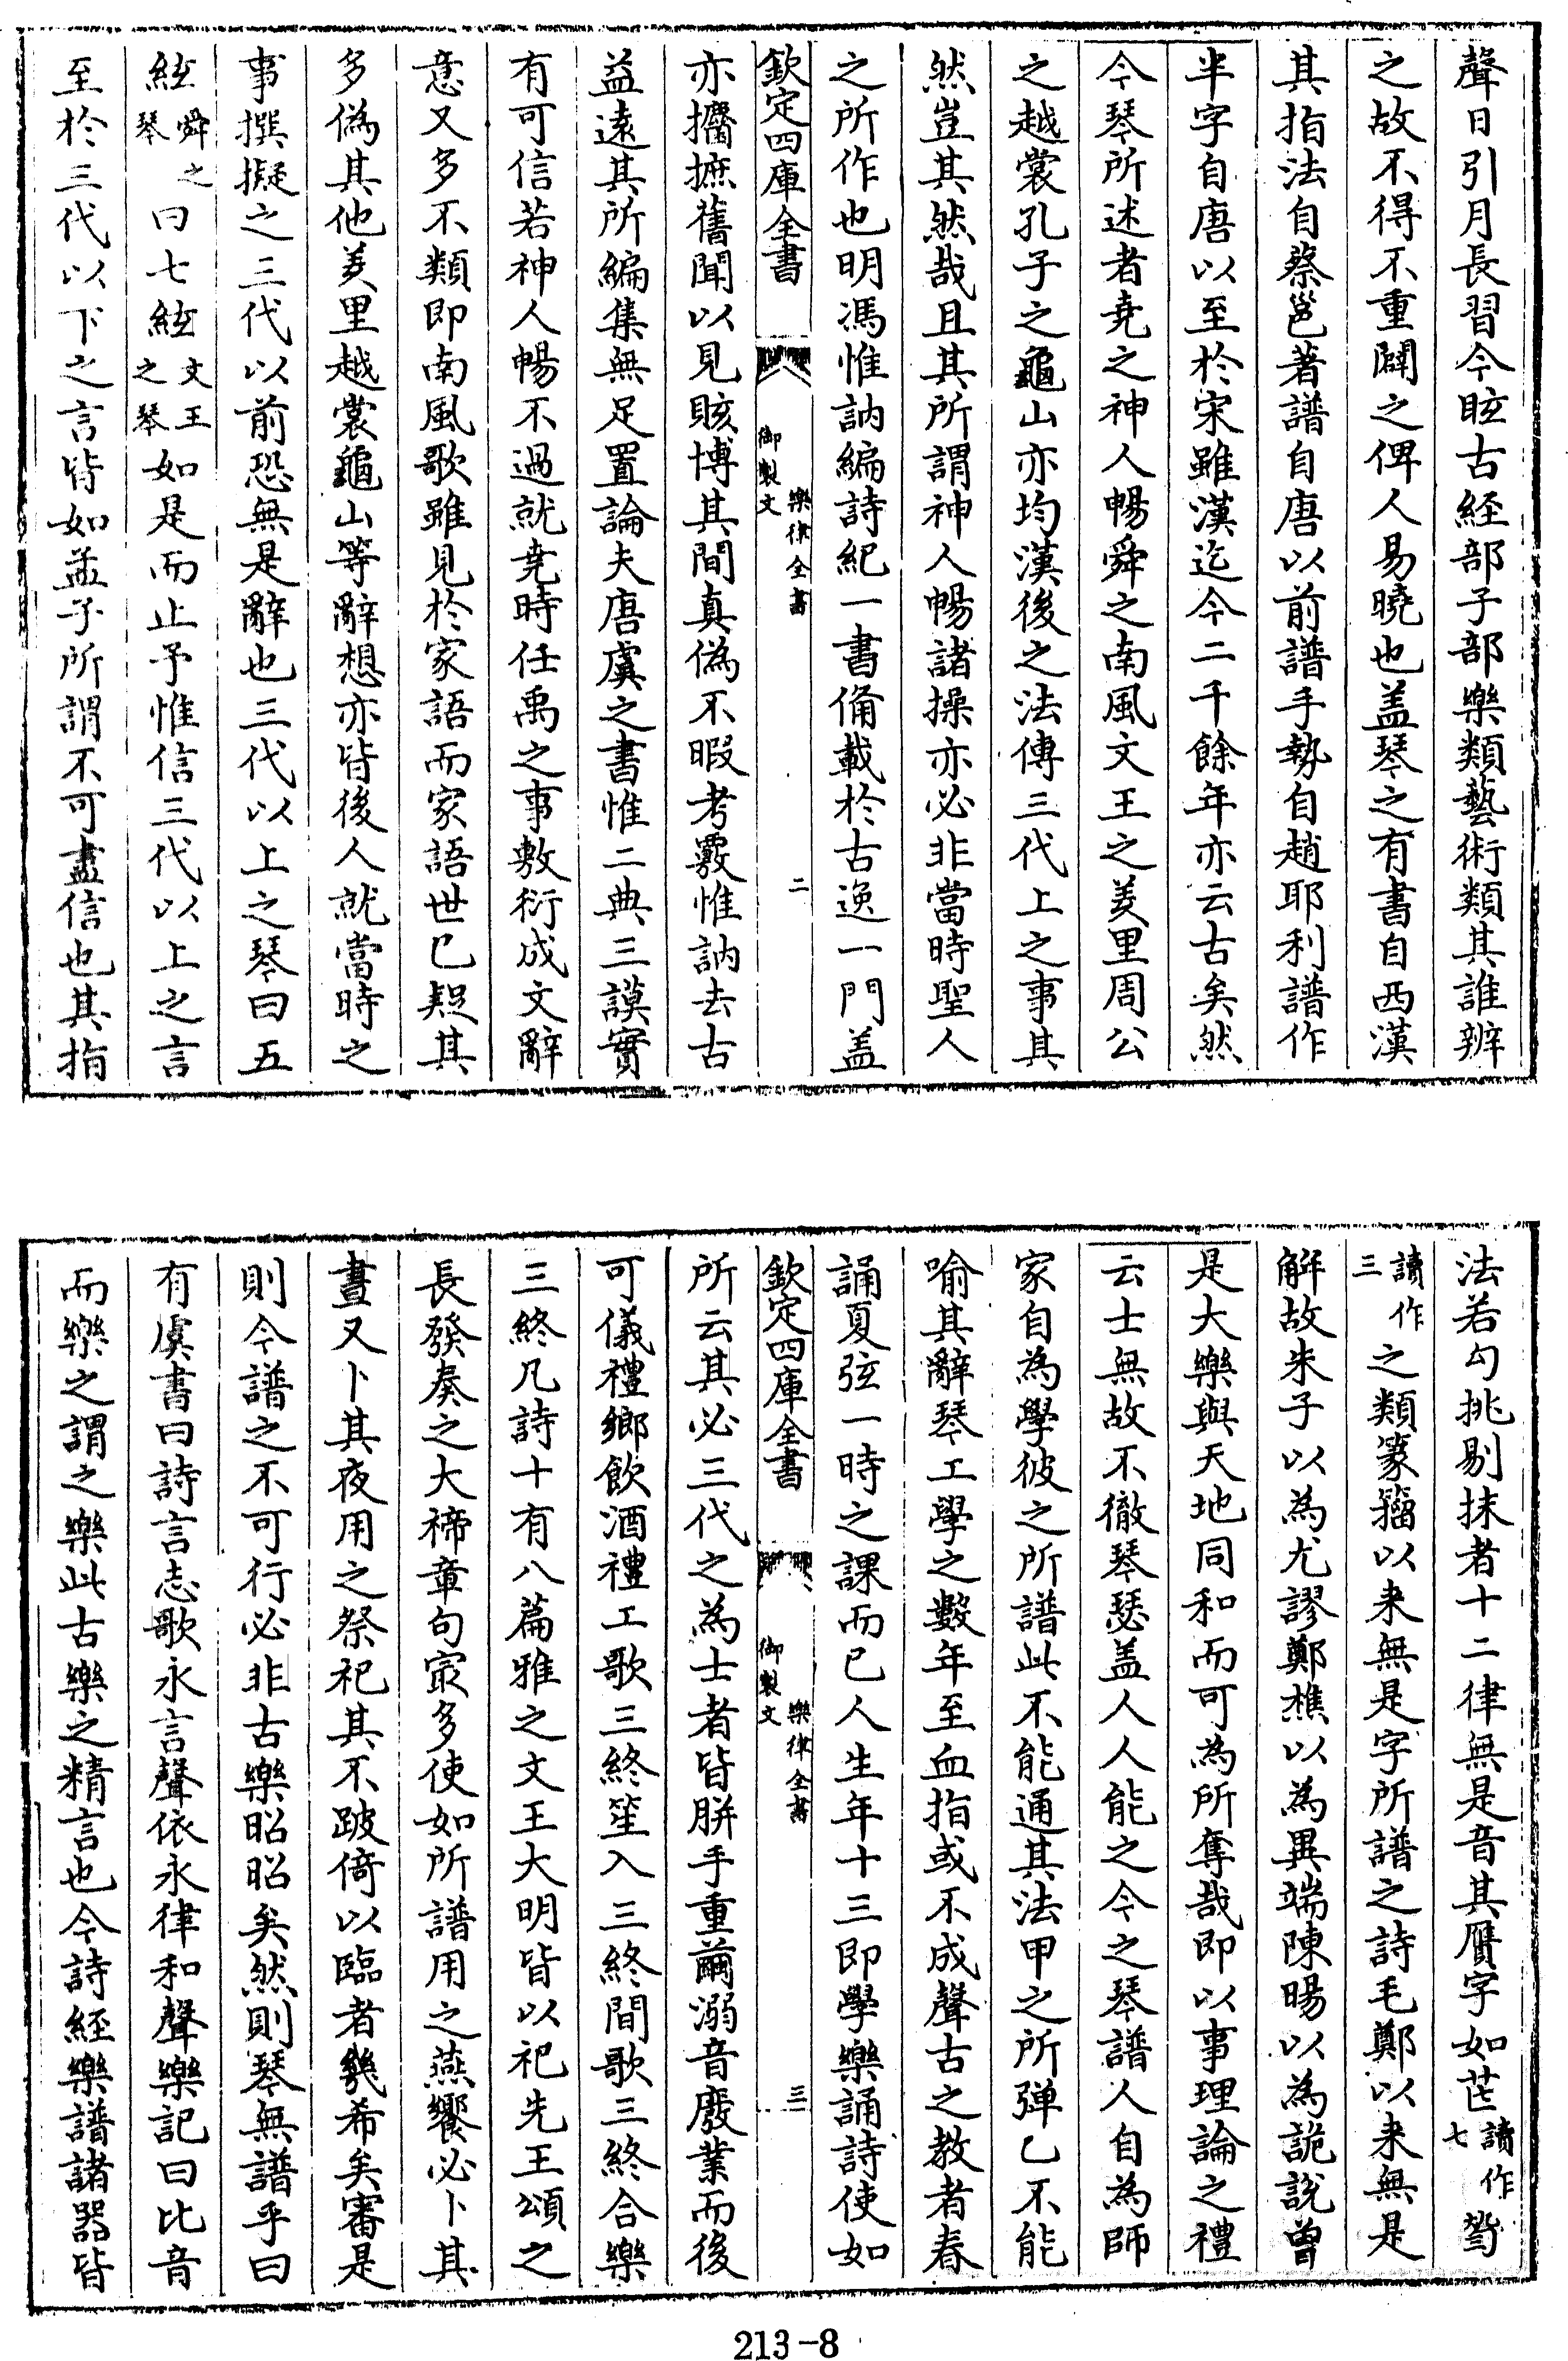 聲日引月長習今眩古經部子部樂類藝術類其誰辨
之故不得不重闢之俾人易曉也盖琴之有書自西漢
其指法自蔡邕著譜自唐以前譜手勢自趙耶利譜作
半字自唐以至於宋雖漢迄今二千餘年亦云古矣然
今琴所述者堯之神人暢舜之南風文王之羑里周公
之越裳孔子之龜山亦均漢後之法傳三代上之事其
然豈其然哉且其所謂神人暢諸操亦必非當時聖人
之所作也明馮惟訥編詩紀一書備載於古逸一門盖
欽定四庫全書 御製文 樂律全書 二
亦攟摭舊聞以見賅博其間真偽不暇考覈惟訥去古
益遠其所編集無足置論夫唐虞之書惟二典三謨實
有可信若神人暢不過就堯時任禹之事敷衍成文辭
意又多不類即南風歌雖見於家語而家語世已疑其
多偽其他羑里越裳龜山等辭想亦皆後人就當時之
事撰擬之三代以前恐無是辭也三代以上之琴曰五
絃舜之琴曰七絃文王之琴如是而止予惟信三代以上之言
至於三代以下之言皆如孟子所謂不可盡信也其指
法若勾挑剔抹者十二律無是音其贗字如芷讀作七𫇦
讀作三之類篆籀以來無是字所譜之詩毛鄭以來無是
解故朱子以為尤謬鄭樵以為異端陳暘以為詭說曾
是大樂與天地同和而可為所奪哉即以事理論之禮
云士無故不徹琴瑟盖人人能之今之琴譜人自為師
家自為學彼之所譜此不能通其法甲之所弹乙不能
喻其辭琴工學之數年至血指或不成聲古之教者春
誦夏弦一時之課而已人生年十三即學樂誦詩使如
欽定四庫全書 御製文 樂律全書 三
所云其必三代之為士者皆胼手重繭溺音廢業而後
可儀禮鄉飲酒禮工歌三終笙入三終間歌三終合樂
三終凡詩十有八篇雅之文王大明皆以祀先王頌之
長發奏之大禘章句㝡多使如所譜用之燕饗必卜其
晝又卜其夜用之祭祀其不跛倚以臨者幾希矣審是
則今譜之不可行必非古樂昭昭矣然則琴無譜乎曰
有虞書曰詩言志歌永言聲依永律和聲樂記曰比音
而樂之謂之樂此古樂之精言也今詩經樂譜諸器皆
213-8